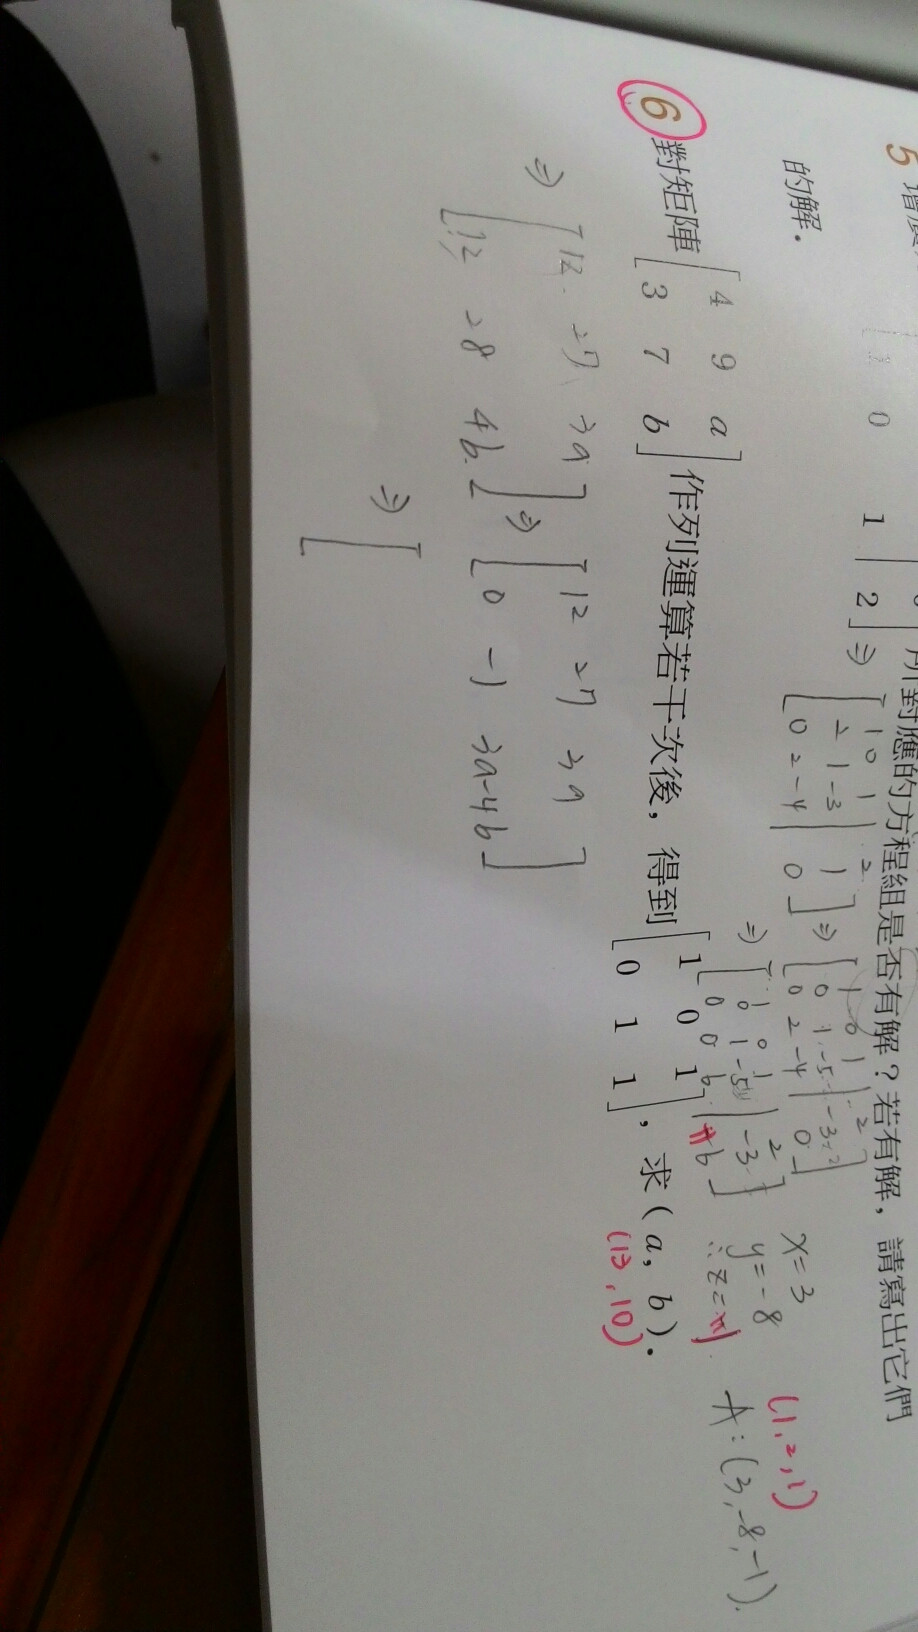 5 增廣
0 1 2 ⇒ 所對應的方程組是否有解？若有解，請寫出它們
的解．
[1 0 1 | 2
2 1 -3 | 1
0 2 -4 | 0] ⇒ [1 0 1 | 2
0 1 -5 | -3
0 2 -4 | 0]
⇒ [1 0 1 | 2
0 1 -5 | -3
0 0 6 | 6]
x=3
y=-8
∴z=
(1,2,1)
A:(3,-8,-1).
6 對矩陣 [4 9 a
3 7 b] 作列運算若干次後，得到 [1 0 1
0 1 1]，求(a, b)．
(13,10)
⇒ [12 27 3a
12 28 4b] ⇒ [12 27 3a
0 -1 3a-4b]
⇒ [